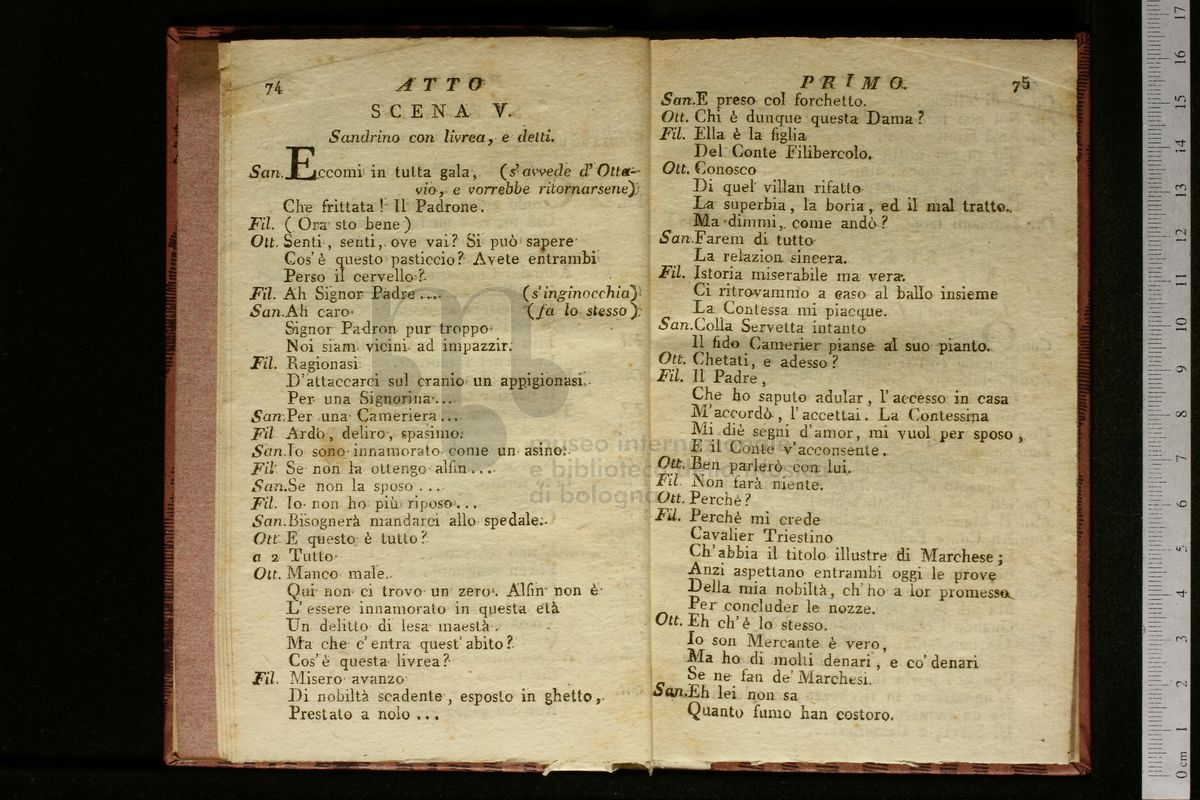 74 ATTO
SCENA V.
Sandrino con livrea, e detti.
San. Eccomi in tutta gala, (s'avvede d'Otta-
vio, e vorrebbe ritornarsene)
Che frittata! Il Padrone.
Fil. (Ora sto bene)
Ott. Senti, senti, ove vai? Si può sapere
Cos'è questo pasticcio? Avete entrambi
Perso il cervello?
Fil. Ah Signor Padre.... (s'inginocchia)
San. Ah caro (fa lo stesso)
Signor Padron pur troppo
Noi siam vicini ad impazzir.
Fil. Ragionasi
D'attaccarci sul cranio un appigionasi.
Per una Signorina...
San. Per una Cameriera...
Fil. Ardo, deliro, spasimo.
San. Io sono innamorato come un asino.
Fil. Se non la ottengo alfin....
San. Se non la sposo...
Fil. Io non ho più riposo...
San. Bisognerà mandarci allo spedale.
Ott. E questo è tutto?
a 2 Tutto
Ott. Manco male.
Qui non ci trovo un zero. Alfin non è
L'essere innamorato in questa età
Un delitto di lesa maestà.
Ma che c'entra quest'abito?
Cos'è questa livrea?
Fil. Misero avanzo
Di nobiltà scadente, esposto in ghetto,
Prestato a nolo...
PRIMO. 75
San. E preso col forchetto.
Ott. Chi è dunque questa Dama?
Fil. Ella è la figlia
Del Conte Filibercolo.
Ott. Conosco
Di quel villan rifatto
La superbia, la boria, ed il mal tratto.
Ma dimmi, come andò?
San. Farem di tutto
La relazion sincera.
Fil. Istoria miserabile ma vera.
Ci ritrovammo a caso al ballo insieme
La Contessa mi piacque.
San. Colla Servetta intanto
Il fido Camerier pianse al suo pianto.
Ott. Chetati, e adesso?
Fil. Il Padre,
Che ho saputo adular, l'accesso in casa
M'accordò, l'accettai. La Contessina
Mi diè segni d'amor, mi vuol per sposo,
E il Conte v'acconsente.
Ott. Ben parlerò con lui.
Fil. Non farà niente.
Ott. Perchè?
Fil. Perchè mi crede
Cavalier Triestino
Ch'abbia il titolo illustre di Marchese;
Anzi aspettano entrambi oggi le prove
Della mia nobiltà, ch'ho a lor promesso
Per concluder le nozze.
Ott. Eh ch'è lo stesso.
Io son Mercante è vero,
Ma ho di molti denari, e co'denari
Se ne fan de'Marchesi.
San. Eh lei non sa
Quanto fumo han costoro.
museo internazionale
e biblioteca della musica
di bologna
0 cm 1 2 3 4 5 6 7 8 9 10 11 12 13 14 15 16 17